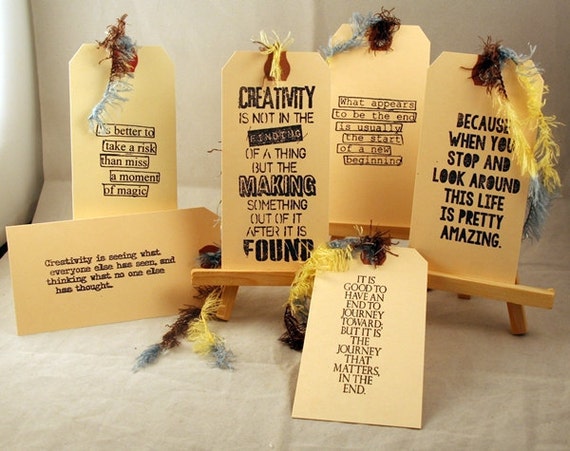 is better to
take a risk
than miss
a moment
of magic
CREATIVITY
IS NOT IN THE
FINDING
OF A THING
BUT THE
MAKING
SOMETHING
OUT OF IT
AFTER IT IS
FOUND
What appears
to be the end
is usually
the start
of a new
beginning
BECAUSE
WHEN YOU
STOP AND
LOOK AROUND
THIS LIFE
IS PRETTY
AMAZING.
Creativity is seeing what
everyone else has seen, and
thinking what no one else
has thought.
IT IS
GOOD TO
HAVE AN
END TO
JOURNEY
TOWARD;
BUT IT IS
THE
JOURNEY
THAT
MATTERS,
IN THE
END.